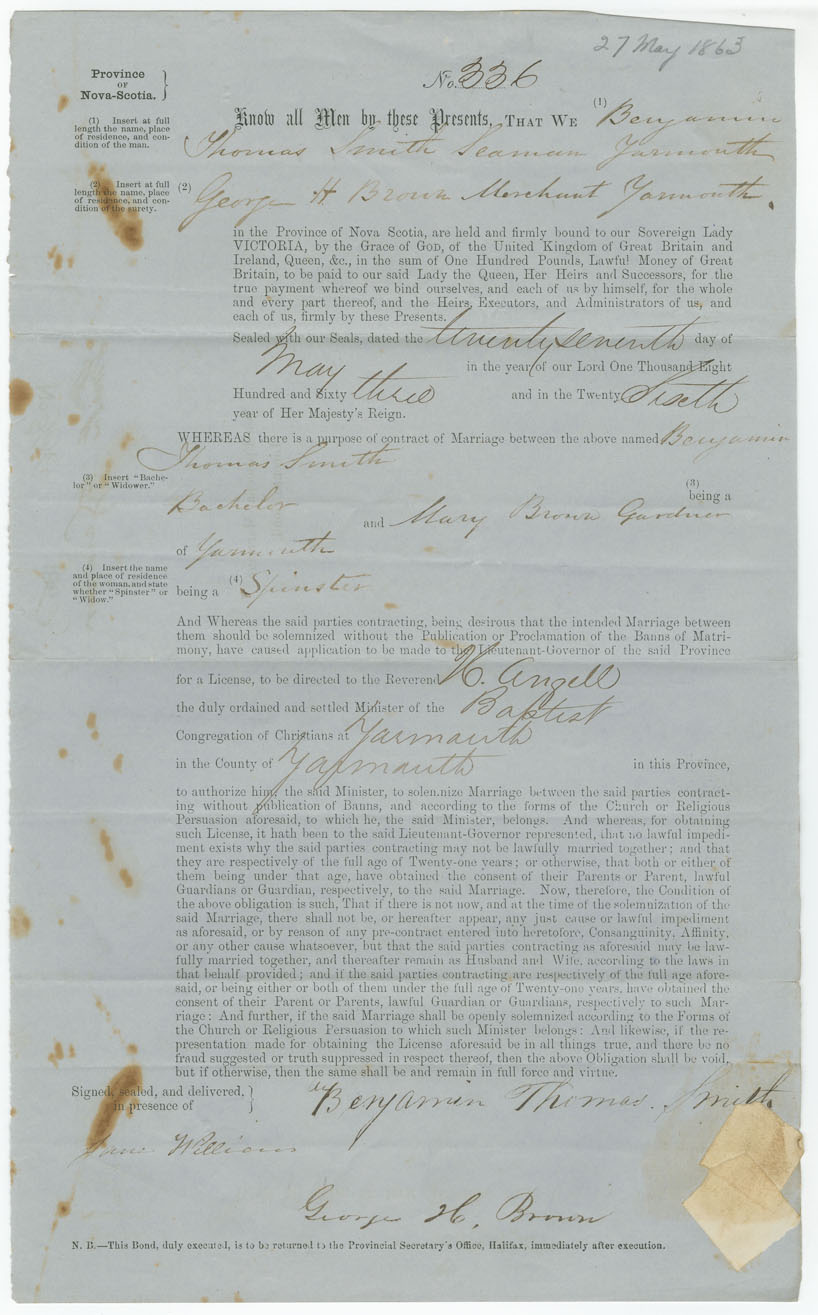 27 May 1863
Province
OF
Nova-Scotia.
No. 336
(1) Insert at full
length the name, place
of residence, and con-
dition of the man.
Know all Men by these Presents, THAT WE (1) Benjamin
Thomas Smith Seaman Yarmouth
(2) Insert at full
length the name, place
of residence, and con-
dition of the surety.
(2) George H Brown Merchant Yarmouth.
in the Province of Nova Scotia, are held and firmly bound to our Sovereign Lady
VICTORIA, by the Grace of GOD, of the United Kingdom of Great Britain and
Ireland, Queen, &c., in the sum of One Hundred Pounds, Lawful Money of Great
Britain, to be paid to our said Lady the Queen, Her Heirs and Successors, for the
true payment whereof we bind ourselves, and each of us by himself, for the whole
and every part thereof, and the Heirs, Executors, and Administrators of us, and
each of us, firmly by these Presents.
Sealed with our Seals, dated the twenty seventh day of
May in the year of our Lord One Thousand Eight
Hundred and Sixty three and in the Twenty Sixth
year of Her Majesty's Reign.
WHEREAS there is a purpose of contract of Marriage between the above named Benjamin
Thomas Smith
(3) Insert "Bache-
lor" or "Widower."
(3)
being a
Bachelor
and Mary Brown Gardner
of Yarmouth
(4) Insert the name
and place of residence
of the woman, and state
whether "Spinster" or
"Widow."
being a (4) Spinster
And Whereas the said parties contracting, being desirous that the intended Marriage between
them should be solemnized without the Publication or Proclamation of the Banns of Matri-
mony, have caused application to be made to the Lieutenant-Governor of the said Province
for a License, to be directed to the Reverend H. Angell
the duly ordained and settled Minister of the Baptist
Congregation of Christians at Yarmouth
in the County of Yarmouth in this Province,
to authorize him, the said Minister, to solemnize Marriage between the said parties contract-
ing without publication of Banns, and according to the forms of the Church or Religious
Persuasion aforesaid, to which he, the said Minister, belongs. And whereas, for obtaining
such License, it hath been to the said Lieutenant-Governor represented, that no lawful impedi-
ment exists why the said parties contracting may not be lawfully married together; and that
they are respectively of the full age of Twenty-one years; or otherwise, that both or either of
them being under that age, have obtained the consent of their Parents or Parent, lawful
Guardians or Guardian, respectively, to the said Marriage. Now, therefore, the Condition of
the above obligation is such, That if there is not now, and at the time of the solemnization of the
said Marriage, there shall not be, or hereafter appear, any just cause or lawful impediment
as aforesaid, or by reason of any pre-contract entered into heretofore, Consanguinity, Affinity,
or any other cause whatsoever, but that the said parties contracting as aforesaid may be law-
fully married together, and thereafter remain as Husband and Wife, according to the laws in
that behalf provided; and if the said parties contracting are respectively of the full age afore-
said, or being either or both of them under the full age of Twenty-one years, have obtained the
consent of their Parent or Parents, lawful Guardian or Guardians, respectively to such Mar-
riage: And further, if the said Marriage shall be openly solemnized according to the Forms of
the Church or Religious Persuasion to which such Minister belongs: And likewise, if the re-
presentation made for obtaining the License aforesaid be in all things true, and there be no
fraud suggested or truth suppressed in respect thereof, then the above Obligation shall be void,
but if otherwise, then the same shall be and remain in full force and virtue.
Signed, sealed, and delivered,
in presence of
Benjamin Thomas. Smith
Jane Williams
George H. Brown
N. B.—This Bond, duly executed, is to be returned to the Provincial Secretary's Office, Halifax, immediately after execution.